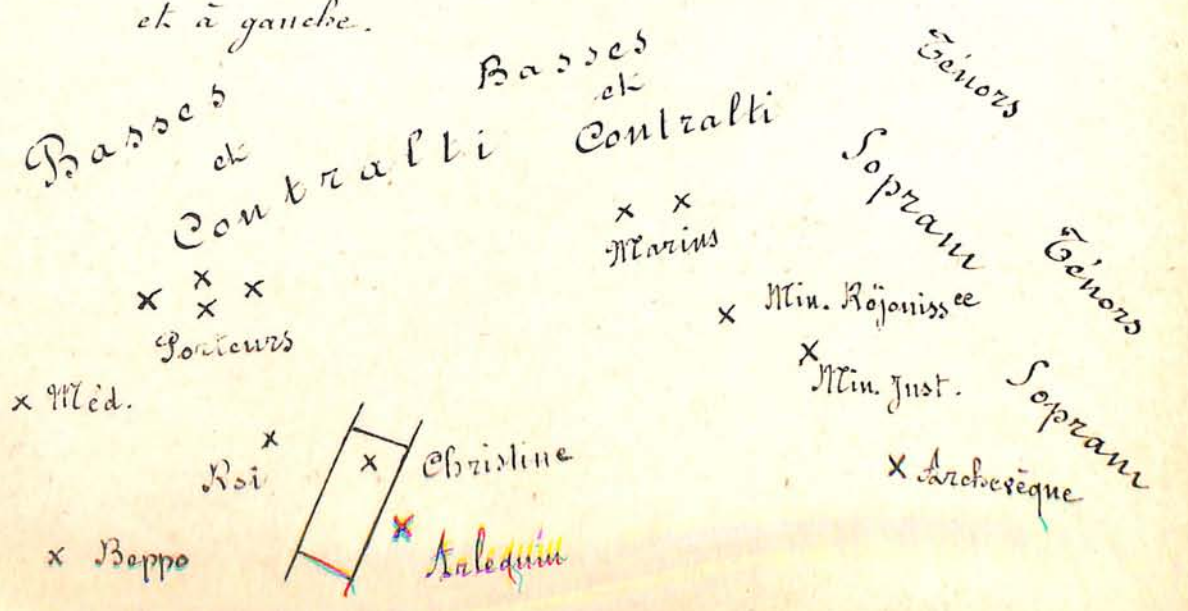 et à gauche.
Basses
et
Contralti
Basses
et
Contralti
Ténors
Soprani
Ténors
Soprani
x x
Marius
x x x x
Porteurs
x Min. Réjouiss^ee
x Min. Just.
x Méd.
x Roi
x Christine
x Archevêque
x Beppo
x Arlequin